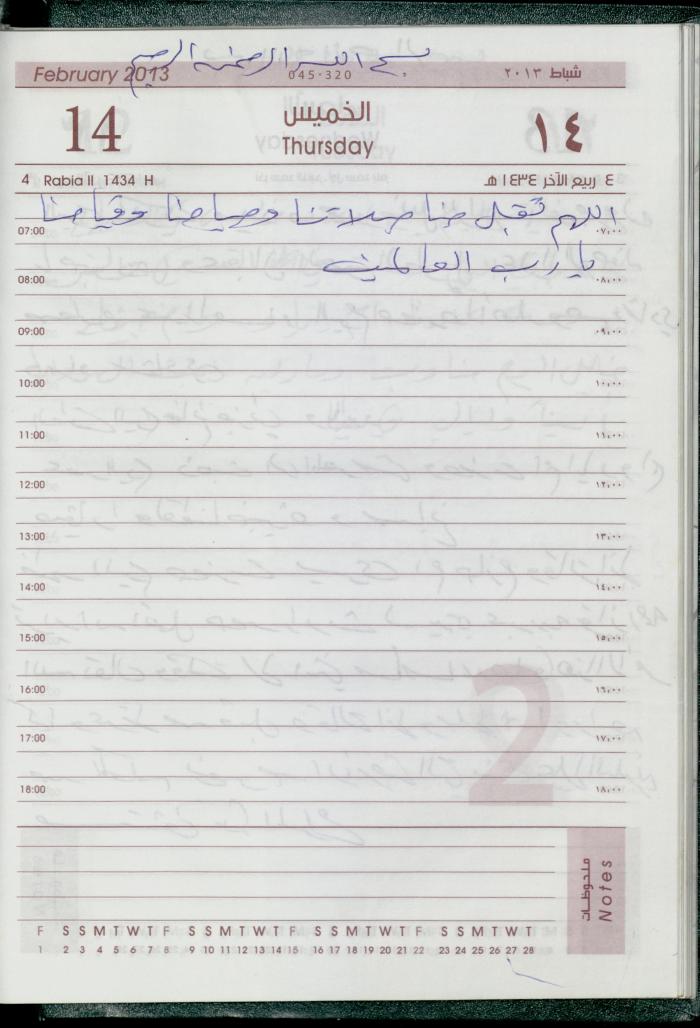 بسم الله الرحمن الرحيم
February 2013 045-320 شباط ٢٠١٣
14 الخميس ١٤
Thursday
4 Rabia II 1434 H ٤ ربيع الآخر ١٤٣٤ هـ
اللهم تقبل منا صلاتنا وصيامنا وقيامنا
07:00 ٠٧,٠٠
يا رب العالمين
08:00 ٠٨,٠٠
09:00 ٠٩,٠٠
10:00 ١٠,٠٠
11:00 ١١,٠٠
12:00 ١٢,٠٠
13:00 ١٣,٠٠
14:00 ١٤,٠٠
15:00 ١٥,٠٠
16:00 ١٦,٠٠
17:00 ١٧,٠٠
18:00 ١٨,٠٠
2
ملحوظات
Notes
F S S M T W T F S S M T W T F S S M T W T F S S M T W T
1 2 3 4 5 6 7 8 9 10 11 12 13 14 15 16 17 18 19 20 21 22 23 24 25 26 27 28